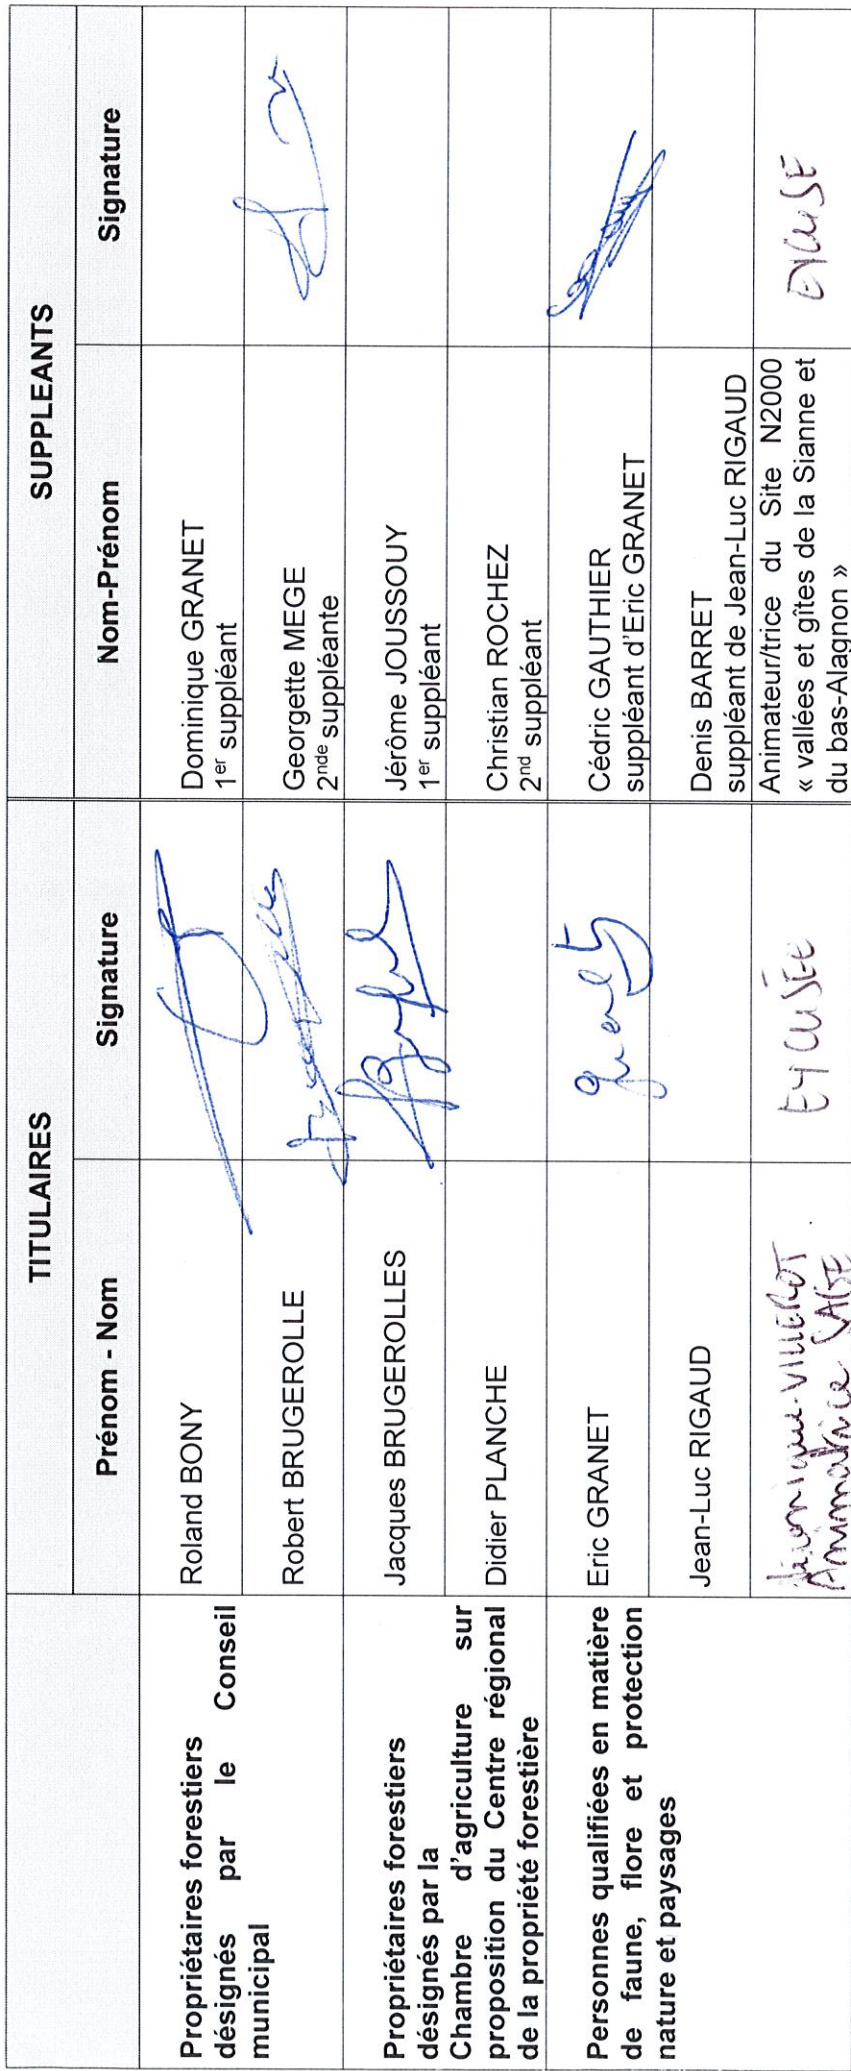 TITULAIRES
SUPPLEANTS
Prénom - Nom
Signature
Nom-Prénom
Signature
Propriétaires forestiers
désignés par le Conseil
municipal
Roland BONY
Dominique GRANET
1er suppléant
Robert BRUGEROLLE
Georgette MEGE
2nde suppléante
Propriétaires forestiers
désignés par la
Chambre d'agriculture sur
proposition du Centre régional
de la propriété forestière
Jacques BRUGEROLLES
Jérôme JOUSSOUY
1er suppléant
Didier PLANCHE
Christian ROCHEZ
2nd suppléant
Personnes qualifiées en matière
de faune, flore et protection
nature et paysages
Eric GRANET
Cédric GAUTHIER
suppléant d'Eric GRANET
Jean-Luc RIGAUD
Denis BARRET
suppléant de Jean-Luc RIGAUD
VILLEROT
Animatrice SAGE
EXCUSÉE
Animateur/trice du Site N2000
« vallées et gîtes de la Sianne et
du bas-Alagnon »
EXCUSÉ